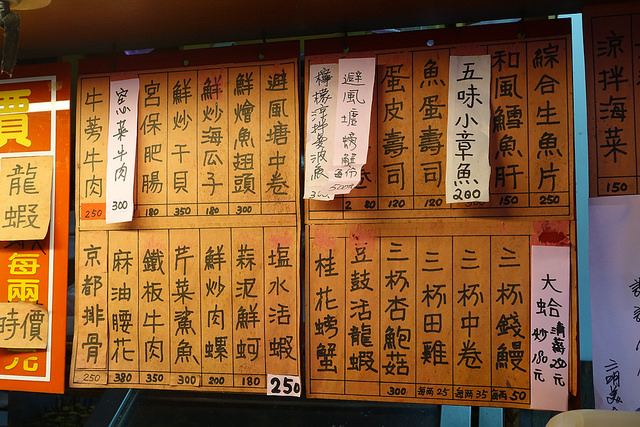 綜合生魚片 250
和風鱈魚肝 150
五味小章魚 200
魚蛋壽司 120
蛋皮壽司 120
避風塘螃蟹
避風塘中卷
鮮燴魚翅頭 300
鮮炒海瓜子 180
鮮炒干貝 350
宮保肥腸 180
窩菜牛肉 300
牛蒡牛肉 250
大蛤 清蒸 250元 炒 180元
三杯錢鰻 每兩 50
三杯中卷 每兩 35
三杯田雞 每兩 25
三杯杏鮑菇 300
豆鼓活龍蝦
桂花螃蟹
塩水活蝦 250
蒜泥鮮蚵 180
鮮炒肉螺 200
芹菜鯊魚 300
鐵板牛肉 350
麻油腰花 380
京都排骨 250
涼拌海菜 150
價
龍蝦
每兩
時價
元